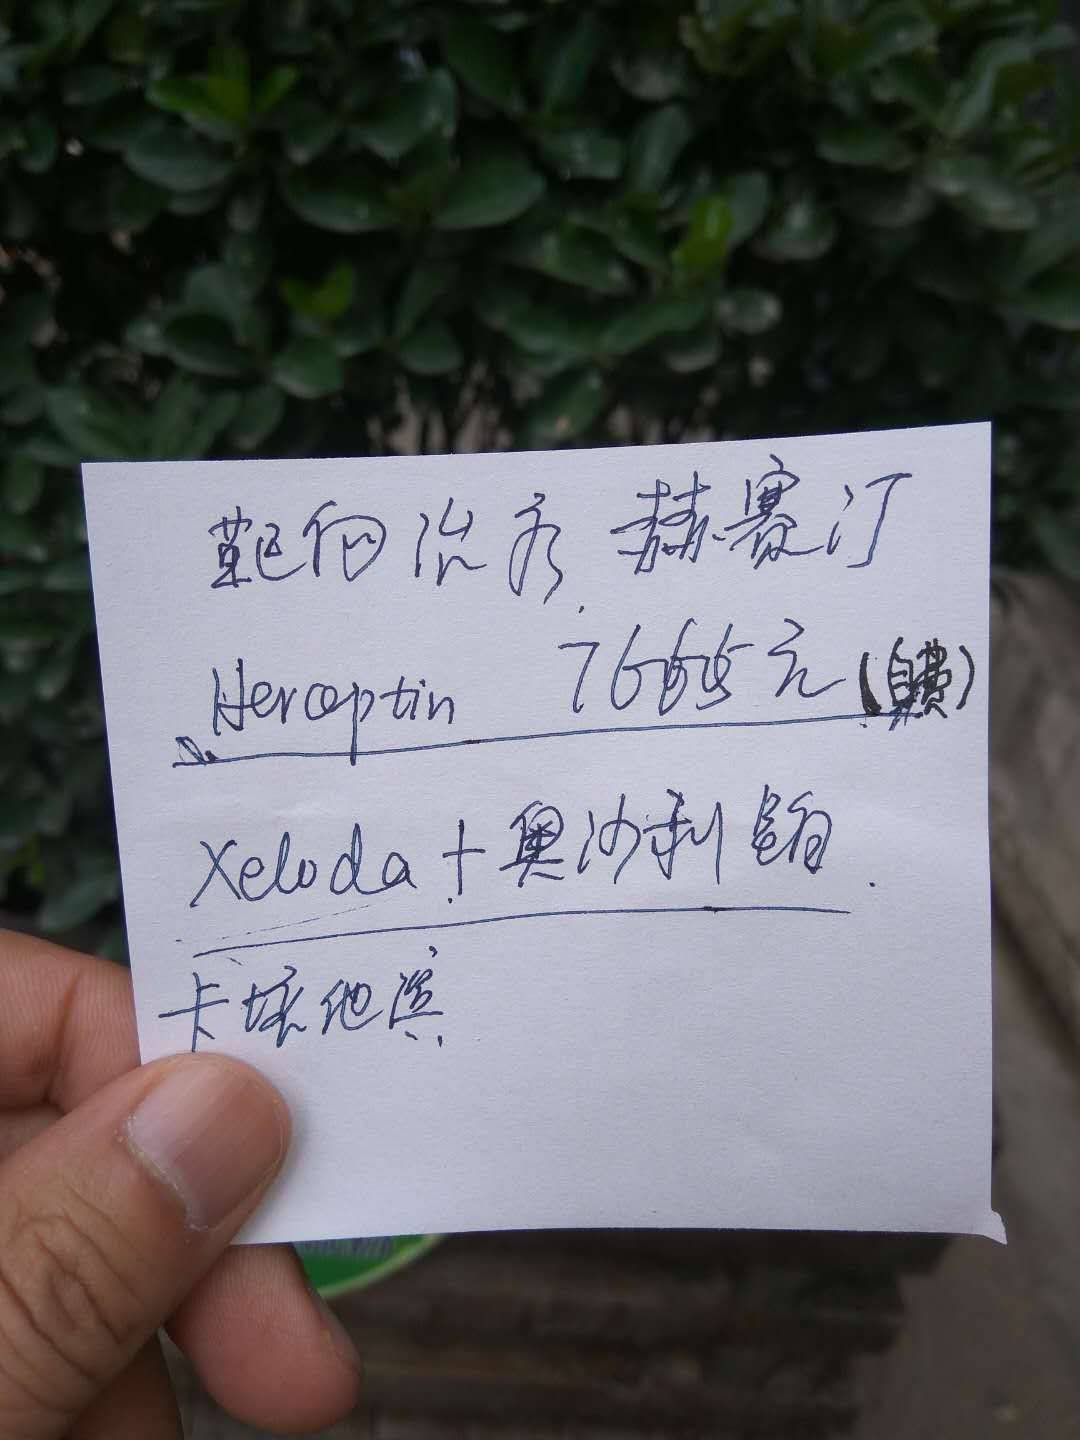 靶向治疗 赫赛汀
Herceptin 7665元(自费)
Xeloda+奥沙利铂.
卡培他滨